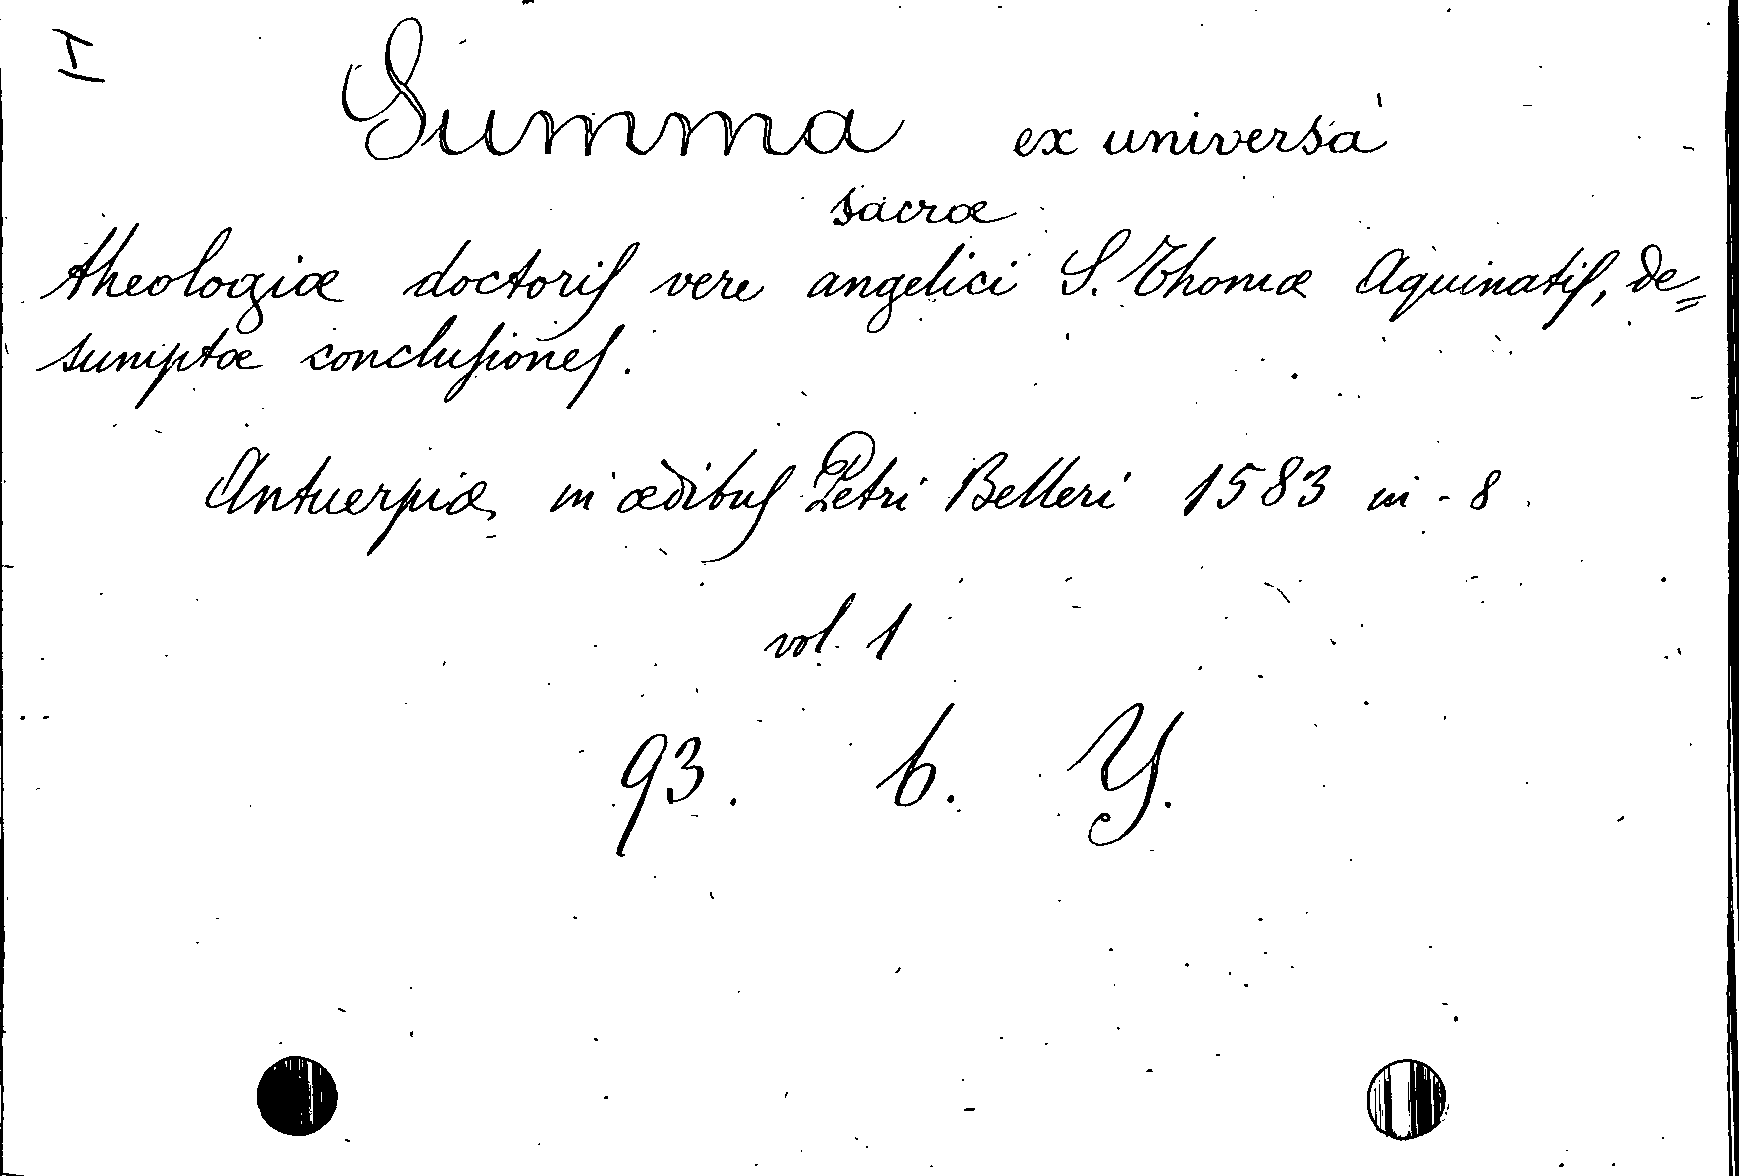 I
Summa ex universa
sacræ
theologiæ doctoris vere angelici S. Thomæ Aquinatis, de=
sumptæ conclusiones.
Antuerpiæ, in ædibus Petri Belleri 1583 in-8
vol. 1
93. b. Y.